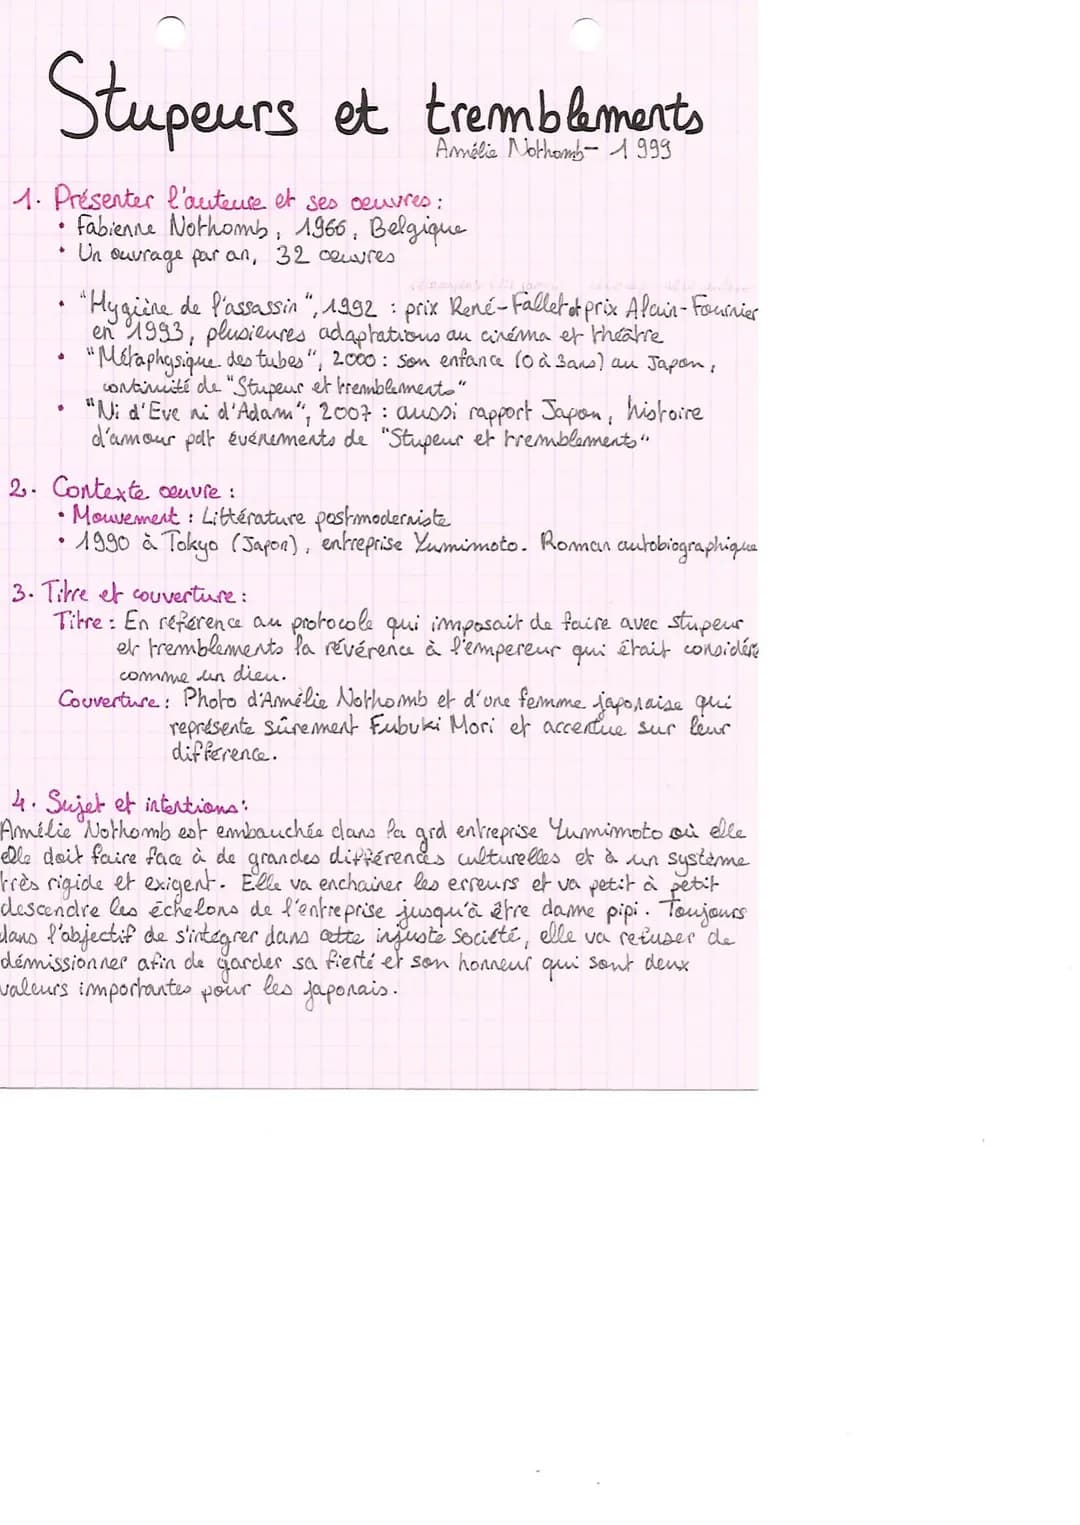 Stupeurs et tremblements
Amélie Nothomb - 1999
1. Présenter l'auteure et ses oeuvres :
• Fabienne Nothomb, 1966, Belgique
• Un ouvrage par an, 32 oeuvres
• "Hygiène de l'assassin", 1992 : prix René-Fallet et prix Alain-Fournier
en 1993, plusieures adaptations au cinéma et théâtre
• "Métaphysique des tubes", 2000 : son enfance (0 à 3ans) au Japon,
continuité de "Stupeur et tremblements"
• "Ni d'Eve ni d'Adam", 2007 : aussi rapport Japon, histoire
d'amour pdt événements de "Stupeur et tremblements"
2. Contexte oeuvre :
• Mouvement : Littérature postmoderniste
• 1990 à Tokyo (Japon), entreprise Yumimoto. Roman autobiographique
3. Titre et couverture :
Titre : En référence au protocole qui imposait de faire avec stupeur
et tremblements la révérence à l'empereur qui était considéré
comme un dieu.
Couverture : Photo d'Amélie Nothomb et d'une femme japonaise qui
représente sûrement Fubuki Mori et accentue sur leur
différence.
4. Sujet et intentions :
Amélie Nothomb est embauchée dans la grd entreprise Yumimoto où elle
elle doit faire face à de grandes différences culturelles et à un système
très rigide et exigent. Elle va enchainer les erreurs et va petit à petit
descendre les échelons de l'entreprise jusqu'à être dame pipi. Toujours
dans l'objectif de s'intégrer dans cette injuste société, elle va refuser de
démissionner afin de garder sa fierté et son honneur qui sont deux
valeurs importantes pour les japonais.